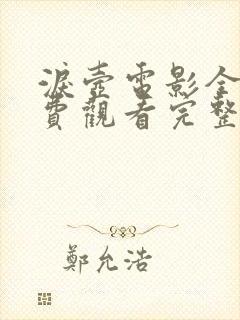 淚壺電影全
費觀看完整
鄭允浩